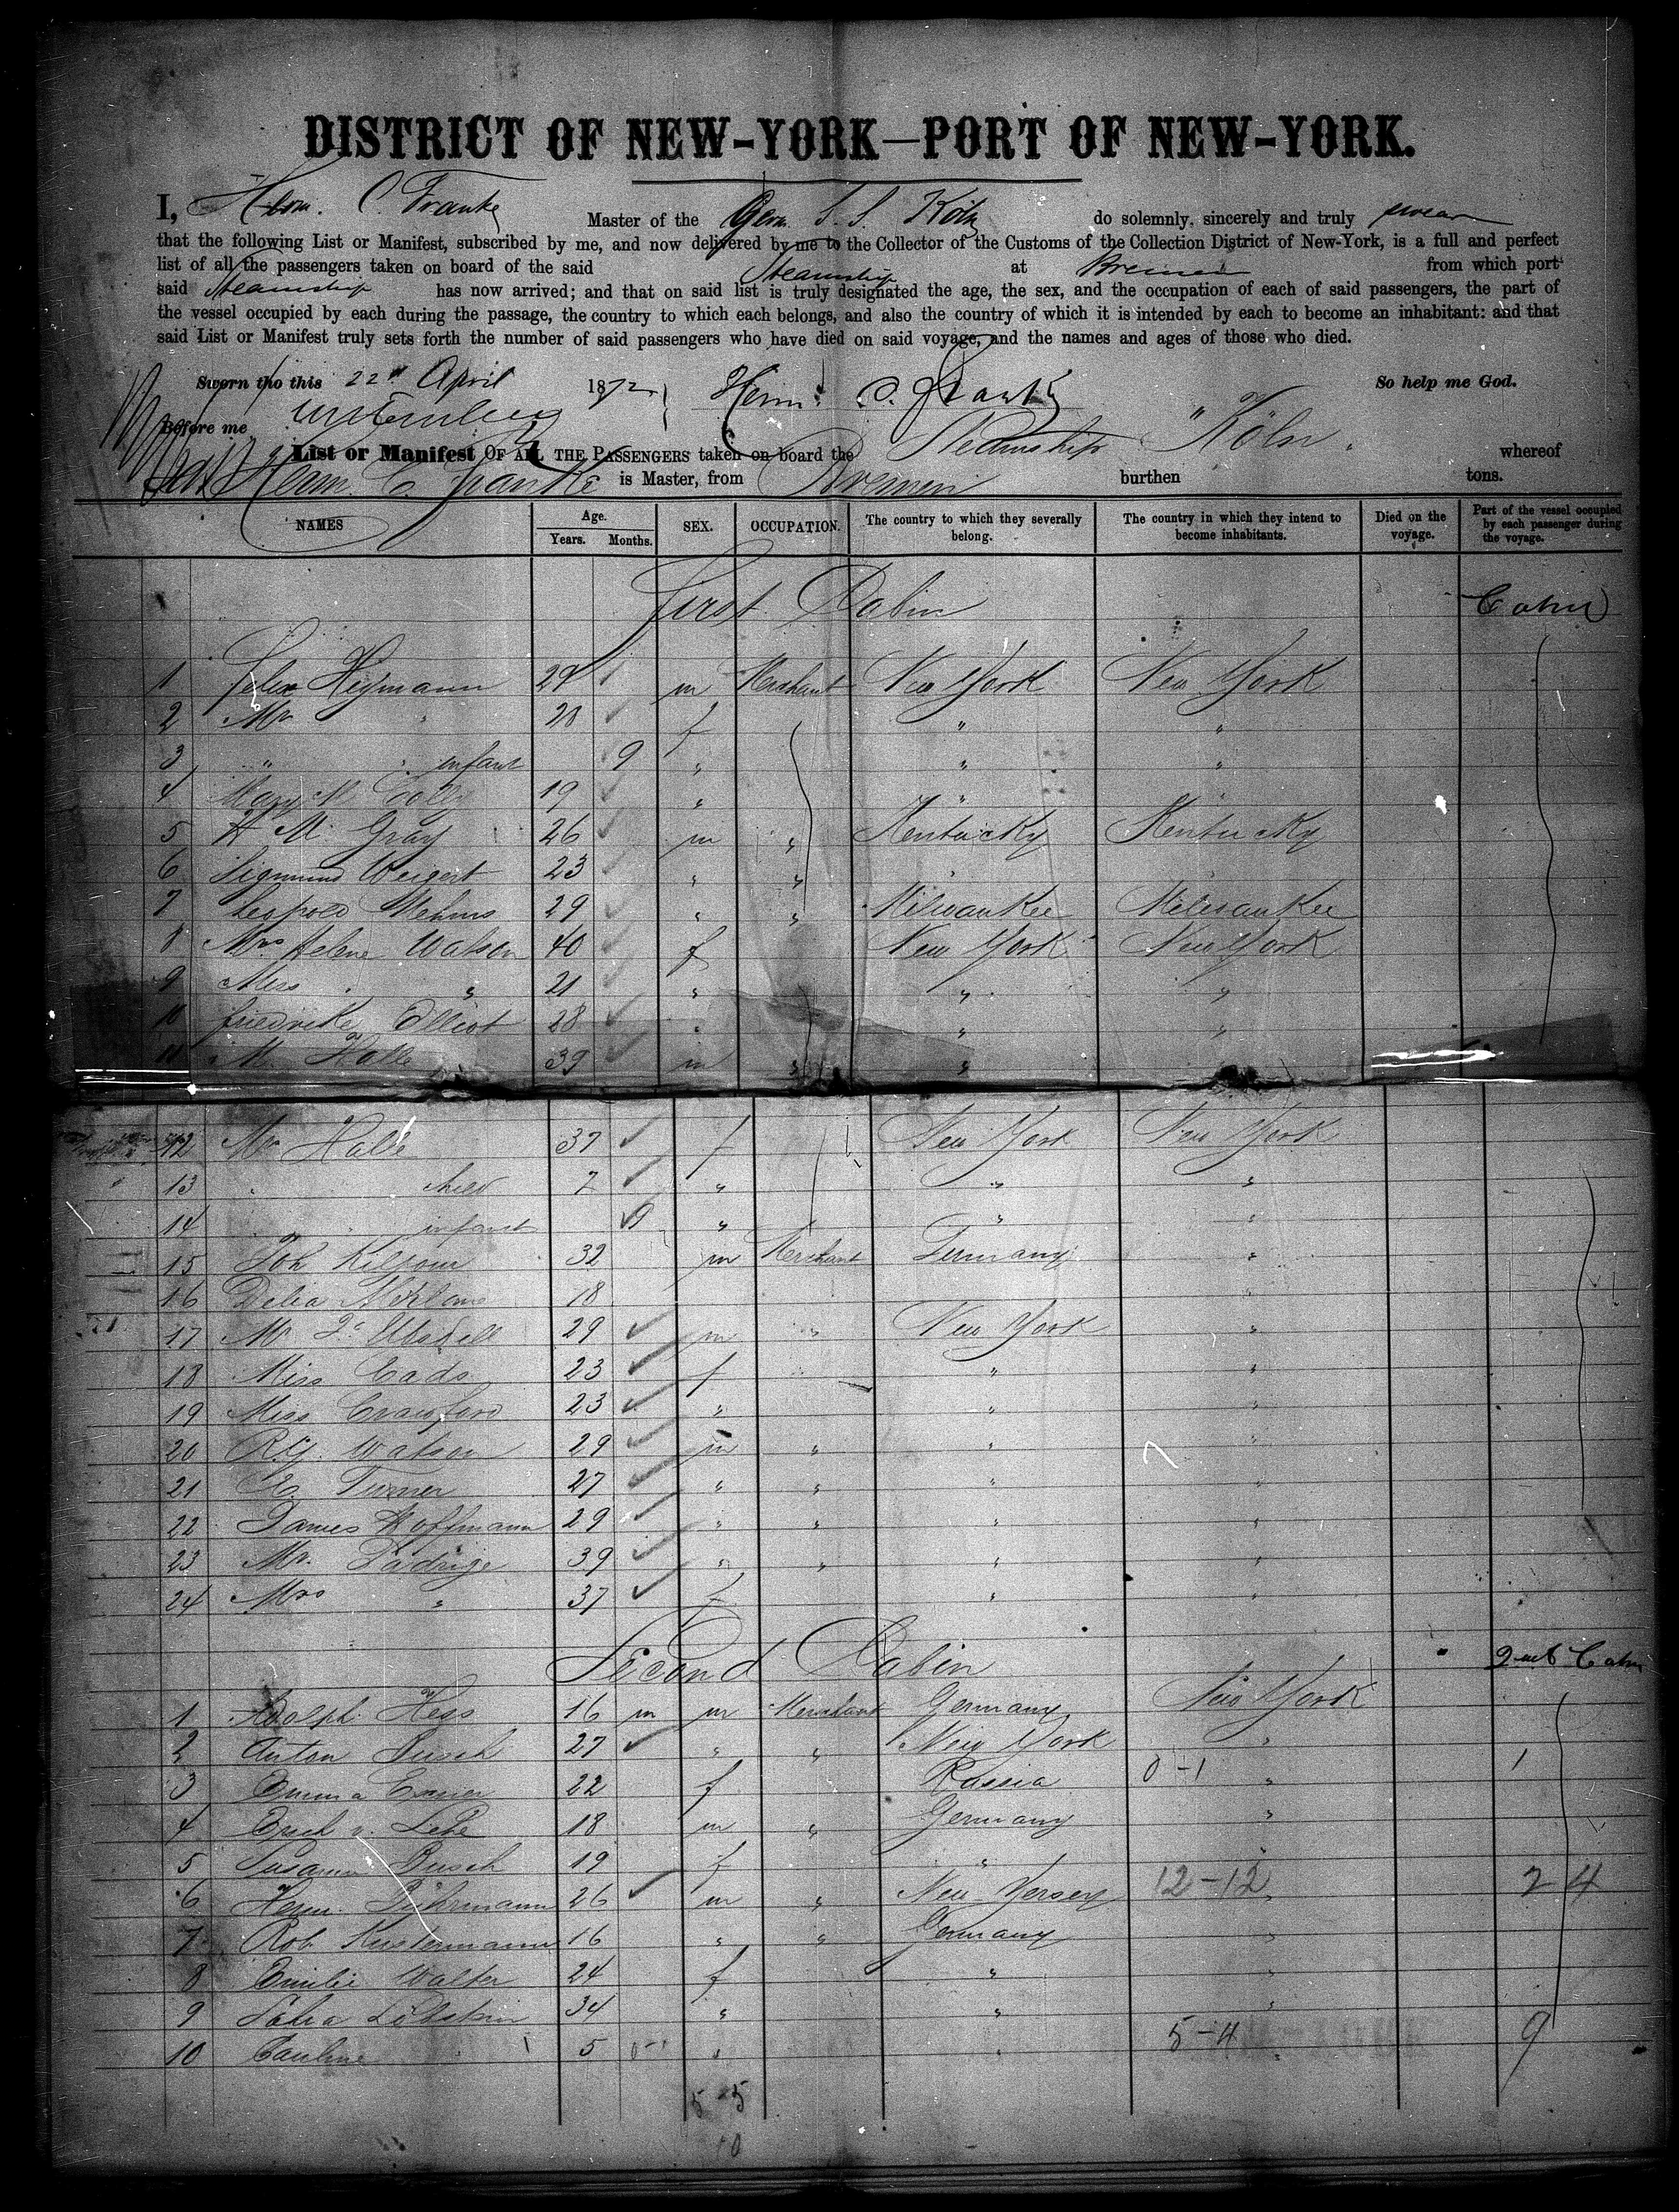 DISTRICT OF NEW-YORK—PORT OF NEW-YORK.
I, Herm. C. Franke Master of the Germ. S. S. Köln do solemnly, sincerely and truly swear
that the following List or Manifest, subscribed by me, and now delivered by me to the Collector of the Customs of the Collection District of New-York, is a full and perfect
list of all the passengers taken on board of the said Steamship at Bremen from which port
said Steamship has now arrived; and that on said list is truly designated the age, the sex, and the occupation of each of said passengers, the part of
the vessel occupied by each during the passage, the country to which each belongs, and also the country of which it is intended by each to become an inhabitant: and that
said List or Manifest truly sets forth the number of said passengers who have died on said voyage, and the names and ages of those who died.
Sworn tho this 22d April 1872 Herm. C. Franke So help me God.
Before me
List or Manifest OF ALL THE PASSENGERS taken on board the Steamship "Köln" whereof
Herm. C. Franke is Master, from Bremen burthen tons.
NAMES Age. Years. Months. SEX. OCCUPATION. The country to which they severally belong. The country in which they intend to become inhabitants. Died on the voyage. Part of the vessel occupied by each passenger during the voyage.
First Cabin Cabin
1 Felix Heymann 29 m Merchant New York New York
2 Mrs " 20 f " "
3 " " infant 9 " " "
4 Mary 19 " " "
5 H. M. Gray 26 m " Kentucky Kentucky
6 Sigmund Weigert 23 " " "
7 Leopold 29 " " Milwaukee Milwaukee
8 Mrs Helene Watson 40 f New York New York
9 Miss " 21 " " "
10 Friedricke Elliot 28 " " "
11 M. Halle 39 m " "
12 Mrs Halle 37 f New York New York
13 " child 7 " " "
14 " infant 9 " " "
15 Joh 32 m Merchant Germany "
16 Delia 18 "
17 Mr 29 m " New York "
18 Miss Eads 23 f " "
19 Miss Crawford 23 " " "
20 R.G. Watson 29 m " " "
21 E. Turner 27 " " " "
22 James Hoffmann 29 " " " "
23 Mr. 39 " " " "
24 Mrs " 37 f " "
Second Cabin 2nd Cabin
1 Adolph Hess 16 m m Merchant Germany New York
2 Anton Busch 27 " " New York "
3 Emma 22 f Russia 0-1 " 1
4 Erich v. 18 m " Germany "
5 Susanna Busch 19 f " "
6 Herm. Bührmann 26 m " New Yersey 12-12 " 24
7 Rob. Kustermann 16 " " Germany "
8 Emilie Walter 24 f " "
9 34 " " "
10 Pauline " 5 0- " " 5-4 " 9
5-5
10